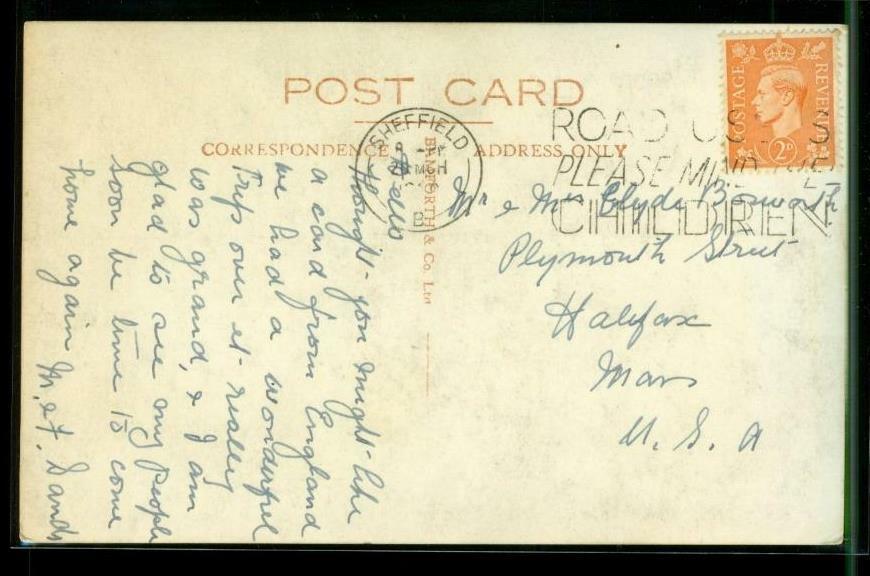 POST CARD
CORRESPONDENCE
ADDRESS ONLY
BAMFORTH & Co. Ltd
SHEFFIELD
ROAD USERS
PLEASE MIND THE
CHILDREN
POSTAGE REVENUE
2D
Hello
thought you might like
a card from England
we had a wonderful
trip over it really
was grand, & I am
glad to see my people
soon be time to come
home again M. & F. Sands
Mr & Mrs Clyde Bosworth
Plymouth Street
Halifax
Mass
U. S. A